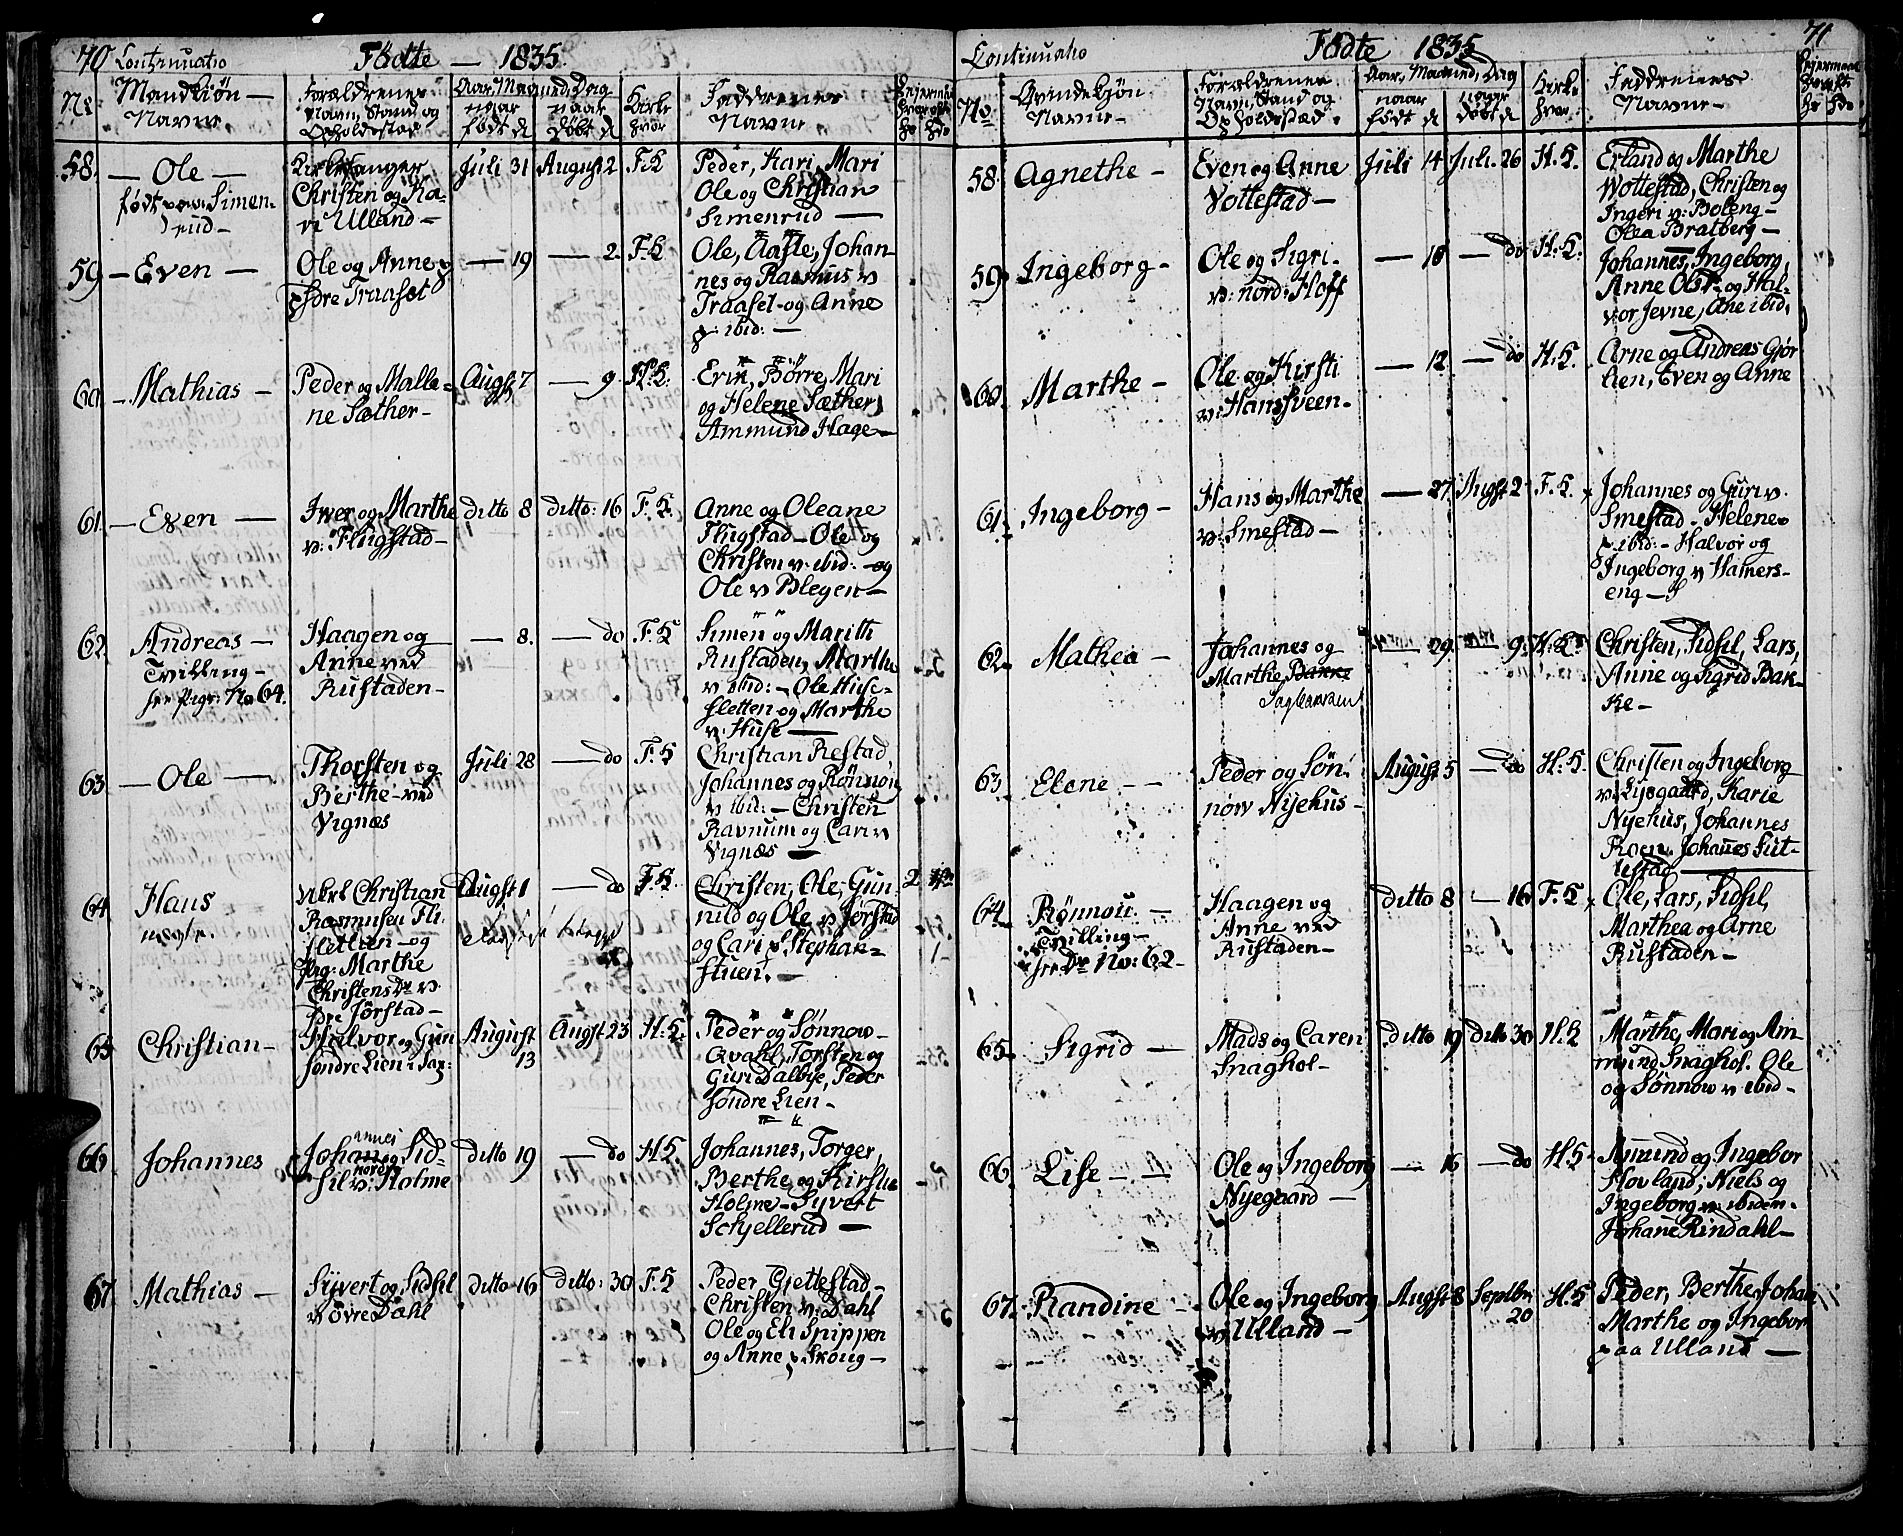 70 Continuatio Fødte — 1835.
No
Mandkiøn —
Navne.
Forældrenes
Navn, Stand og
Opholdssted
Aar, Maaned, Dag
naar
født d
naar
døbt d
Kirke
hvor
Faddrenes
Navne
58.
— Ole —
født paa Simen-
rud —
Kirkesanger
Christen og Ka-
ri Ulland —
Juli 31
August 2
F. K
Peder, Kari, Mari
Ole og Christian
Simenrud —
59
— Even —
Ole og Anne p
Øfre Traaset
— 19
— 2
F. K
Ole, Aasle, Johan-
nes og Rasmus v
Traaset — og Anne
p: ibid: —
60
— Mathias —
Peder og Malle-
ne Sæther —
Augst 7
— 9
H. K.
Erik, Børre, Mari
og Helene Sæther
Ammund Hage —
61.
— Even —
Iver og Marthe
v: Flugstad —
ditto 8
ditto: 16
F. K.
Anne og Oleane
Flugstad — Ole og
Christen v: ibid: — og
Ole v Blegen —
62
Andreas —
Tvilling —
see Pige: No 64.
Haagen og
Anne ved
Rustaden —
— 8.
— do
F. K
Simen og Marith
Rustaden, Marthe
v ibid: — Ole Huse-
sletten og Marthe
v: Huse —
63.
— Ole —
Thorsten og
Berthe ved
Vignæs
Juli 28
— do
F. K
Christian Restad,
Johannes og Rønnow
v ibid: — Christen
Ravnum og Cari v
Vignæs —
64
Hans
uægte.
Christian
Rasmusen Fli-
fletlien — og
Pig: Marthe
Christens Dr v.
Øfre Jørstad —
Augst 1
— do
F. K.
Christen, Ole, Gun-
nild og Ole v Jørstad
og Cari v Stephan-
stuen. —
65
Christian —
Halvor og Guri
Søndre Lien i Sax:
August
13
Augst 23
H: K
Peder og Sønnow
Qvahl, Torsten og
Guri Dalbye, Peder
Søndre Lien —
66.
Johannes
Johannes og Sid-
sil v: nordre Holme
ditto 19
— do
H K
Johannes, Torger,
Berthe og Kirstie
Holme — Syvert
Schjellerud —
67
Mathias —
Syvert og Sidsil
v øvre Dahl
ditto 16
ditto: 30
F. K
Peder Gjettestad
Christen v: Dahl
Ole og Eli Spippen
og Anne p Skoug —
71
Continuatio Fødte 1835
No
Qvindekjøn
Navne —
Forældrenes
Navn, Stand og
Opholdssted.
Aar, Maaned, Dag
naar
født d
naar
døbt d
Kirke
hvor
Faddrenes
Navne —
58
Agnethe —
Even og Anne
Vottestad —
Juli 14
Juli. 26
H. K.
Erland og Marthe
Wottestad, Christen og
Ingeri v: Boleng —
Olea Bratberg —
59
Ingeborg —
Ole og Sigri
v: nord: Hoff
— 18
— do
H. K.
Johannes, Ingeborg,
Anne Olst. og Hal-
vor Jevne, Ane ibid.
60
Marthe —
Ole og Kirsti
v: Hansveen —
— 12
— do
H. K.
Arne og Andreas Gjør
lien, Even og Anne
61.
Ingeborg —
Hans og Marthe
v: Smestad —
— 27.
Augst 2
F. K.
Johannes og Guri v.
Smestad. Helene
p ibid: — Halvor og
Ingeborg v Hamers-
eng —
62
Mathea —
Johannes og
Marthe Bakke
Saghaugen
— 29
— 9
H. K
Christen, Sidsil, Lars,
Anne og Sigrid Bak-
ke —
63.
Elene —
Peder og Søn-
nøw Nyehus —
August 5
— do
H. K.
Christen og Ingeborg
v: Lysgaard, Karie
Nyehus, Johannes
Roen, Johannes Sut-
testad —
64.
Rønnou. —
Tvilling —
see Dr No: 62 —
Haagen og
Anne ved
Rustaden —
ditto 8
— 16
F. K
Ole, Lars, Sidsil,
Marthea og Arne
Rustaden —
65.
Sigrid —
Mads og Caren
Snaghol —
ditto 19
ditto 30
H. K
Marthe, Mari og Am-
mund Snaghol. Ole
og Sønnow v ibid —
66.
Lise —
Ole og Ingeborg
Nyegaard —
— 16
— do
H. K
Amund og Ingebor
Hovland, Niels og
Ingeborg v: ibidem.
Johane Rindahl —
67.
Randine —
Ole og Ingeborg
v: Ulland —
Augst 8
Septbr
20
H. K
Peder, Berthe, Johan
Marthe og Ingebor
paa Ulland —